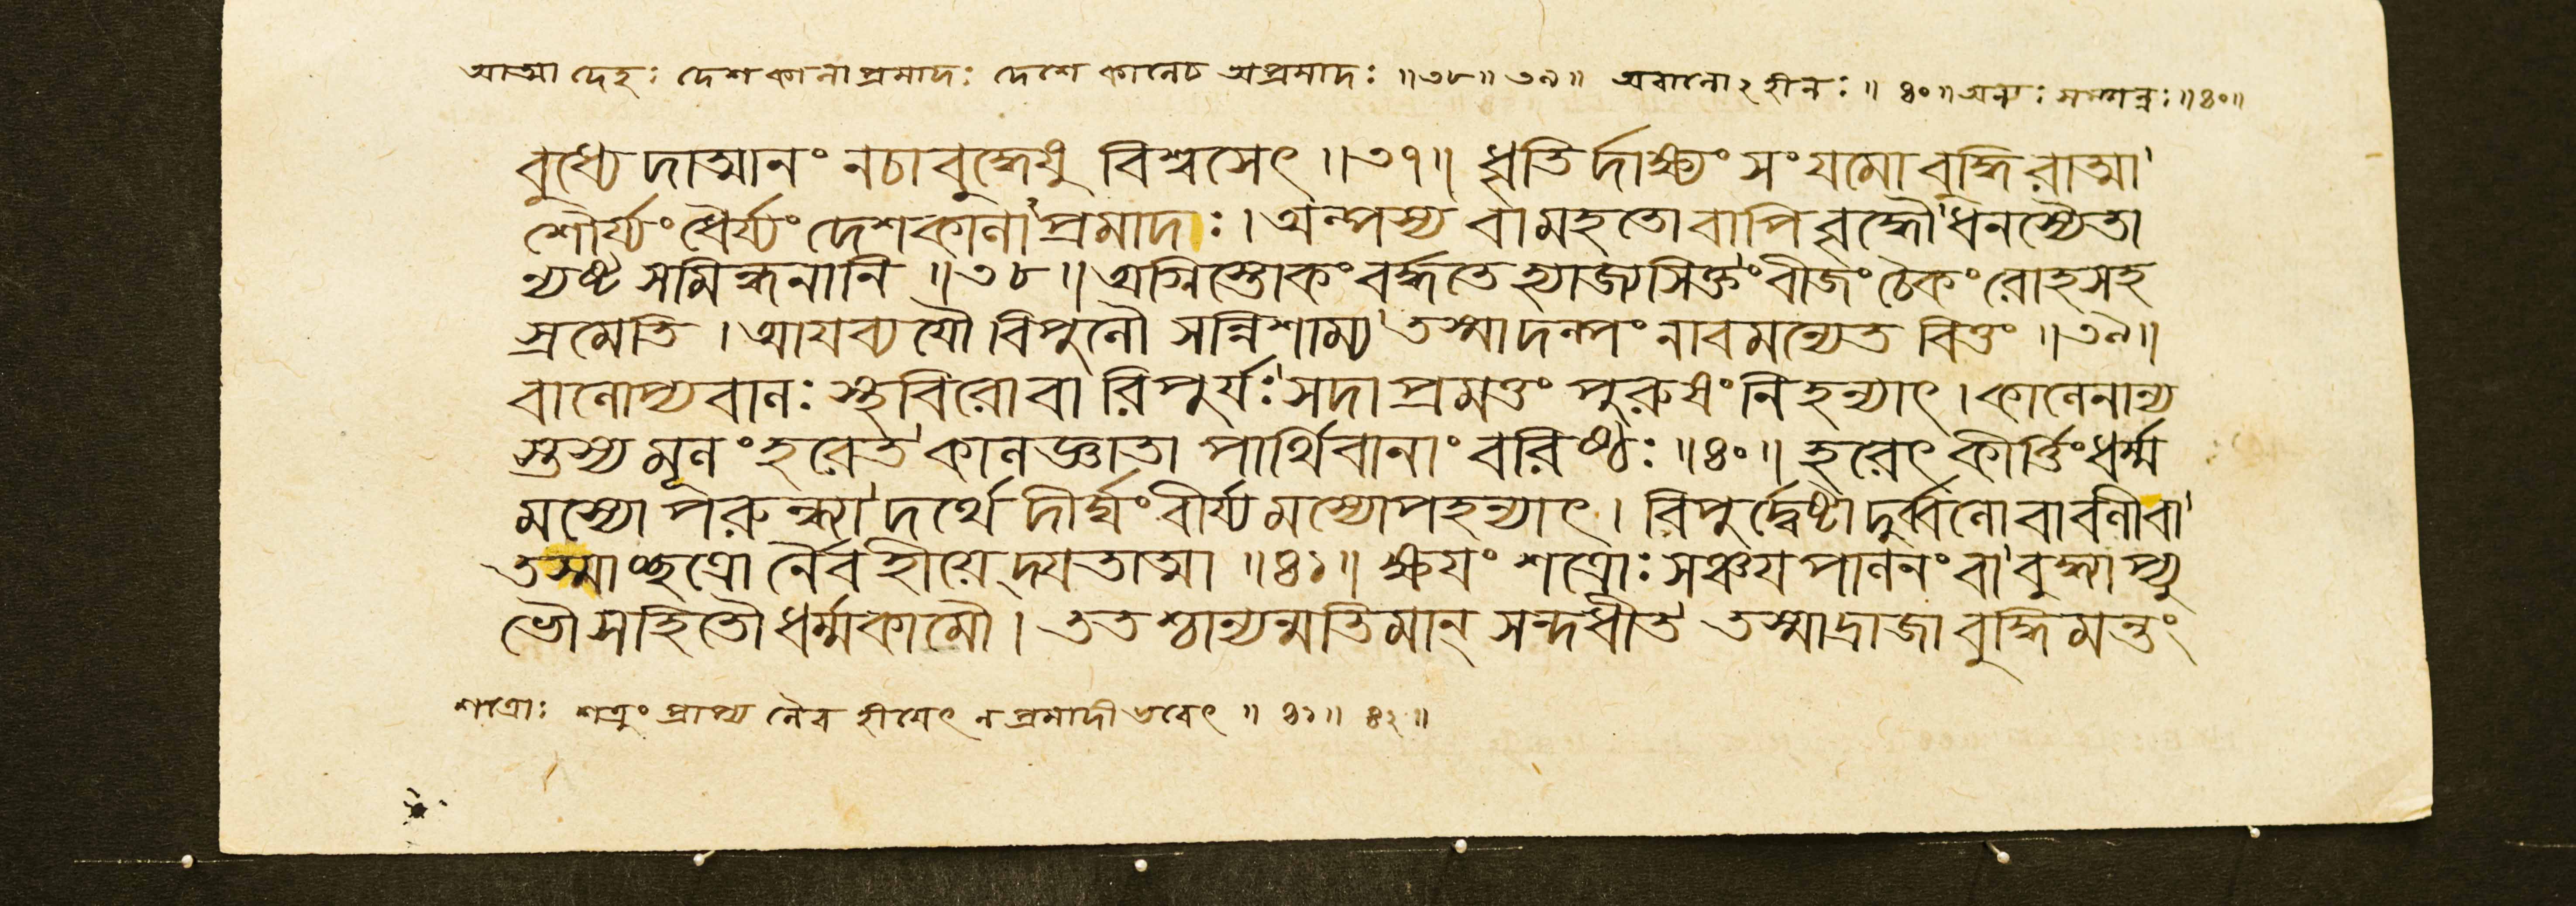 আত্মা দেহঃ দেশকালাপ্রমাদঃ দেশে কালেচ অপ্রমাদঃ ॥৩৮॥ ৩৯॥ অবালোঽহীনঃ ॥ ৪০॥ অন্যঃ সম্পন্নঃ ॥৪০॥
বুধ্যেদাত্মানং নচাবুদ্ধেষু বিশ্বসেৎ ॥৩৭॥ ধৃতির্দাক্ষ্যং সংযমো বুদ্ধিরাত্মা
শৌর্য্যং ধৈর্য্যং দেশকালাপ্রমাদাঃ। অল্পস্য বা মহতোবাপি বৃদ্ধৌ ধনস্যৈতা
ন্যষ্ট সমিন্ধনানি ॥৩৮॥ অগ্নিস্তোকং বর্দ্ধতে হ্যাজ্যসিক্তং বীজং চৈকং রোহসহ
স্রমেতি । আয়ব্যয়ৌ বিপুলৌ সন্নিশাম্য তস্মাদল্পং নাবমন্যেত বিত্তং ॥৩৯॥
বালোপ্যবালঃ স্থবিরোবা রিপুর্যঃ সদা প্রমত্তং পুরুষং নিহন্যাৎ । কালেনান্য
স্তস্য মূলং হরেত কালজ্ঞাতা পার্থিবানাং বরিষ্ঠঃ ॥৪০॥ হরেৎ কীর্ত্তিং ধর্ম্ম
মস্যোপরুন্ধ্যাদর্থে দীর্ঘং বীর্য্যমস্যোপহন্যাৎ । রিপুর্দ্বেষ্টা দুর্ব্বলোবা বলীবা
তস্মাচ্ছত্রো র্নৈবহীয়েদ্যতাত্মা ॥৪১॥ ক্ষয়ং শত্রোঃ সঞ্চয়পালনং বা বুদ্ধ্বাপ্যু
ভৌসহিতৌ ধর্ম্মকামৌ। ততশ্চান্যন্মতিমান্ সন্দধীত তস্মাদ্রাজা বুদ্ধিমন্তং
শত্রোঃ শত্রুং প্রাপ্য নৈব হীয়েৎ ন প্রমাদী ভবেৎ ॥ ৪১॥ ৪২॥